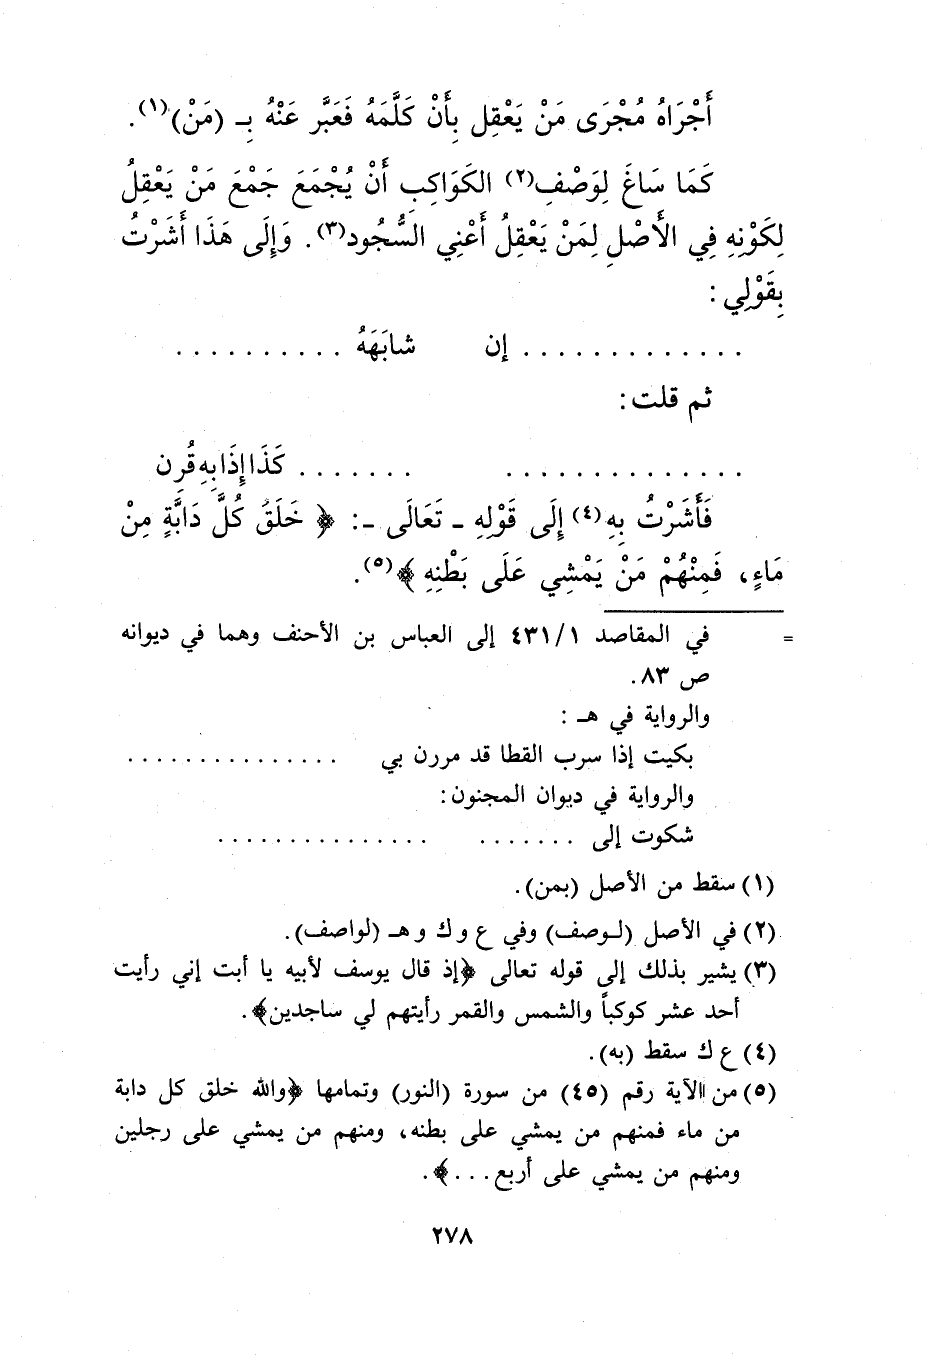 أَجْرَاهُ مُجْرَى مَنْ يَعْقِل بِأَنْ كَلَّمَهُ فَعَبَّر عَنْهُ بِـ (مَنْ)(١).
كَمَا سَاغَ لِوَصْفِ(٢) الكَوَاكِب أَنْ يُجْمَعَ جَمْعَ مَنْ يَعْقِلُ
لِكَوْنِهِ فِي الأَصْلِ لِمَنْ يَعْقِلُ أَعْنِي السُّجُود(٣). وَإِلَى هَذَا أَشَرْتُ
بِقَوْلِي :
. . . . . . . . . . . . . إن شابَهَهُ . . . . . . . . . .
ثم قلت :
. . . . . . . . . . . . . . . . . . . . . كَذَا إِذَا بِهِ قُرِن
فَأَشَرْتُ بِهِ(٤) إِلَى قَوْلِهِ ـ تَعَالَى ـ : ﴿ خَلَقَ كُلَّ دَابَّةٍ مِنْ
مَاءٍ، فَمِنْهُمْ مَنْ يَمْشِي عَلَى بَطْنِهِ ﴾(٥).
= في المقاصد ٤٣١/١ إلى العباس بن الأحنف وهما في ديوانه
ص ٨٣.
والرواية في هـ :
بكيت إذا سرب القطا قد مررن بي . . . . . . . . . . . . . . .
والرواية في ديوان المجنون :
شكوت إلى . . . . . . . . . . . . . . . . . . . . . .
(١) سقط من الأصل (بمن).
(٢) في الأصل (لـوصف) وفي ع و ك و هـ (لواصف).
(٣) يشير بذلك إلى قوله تعالى ﴿إذ قال يوسف لأبيه يا أبت إني رأيت
أحد عشر كوكباً والشمس والقمر رأيتهم لي ساجدين﴾.
(٤) ع ك سقط (به).
(٥) من الآية رقم (٤٥) من سورة (النور) وتمامها ﴿والله خلق كل دابة
من ماء فمنهم من يمشي على بطنه، ومنهم من يمشي على رجلين
ومنهم من يمشي على أربع . . . ﴾.
٢٧٨